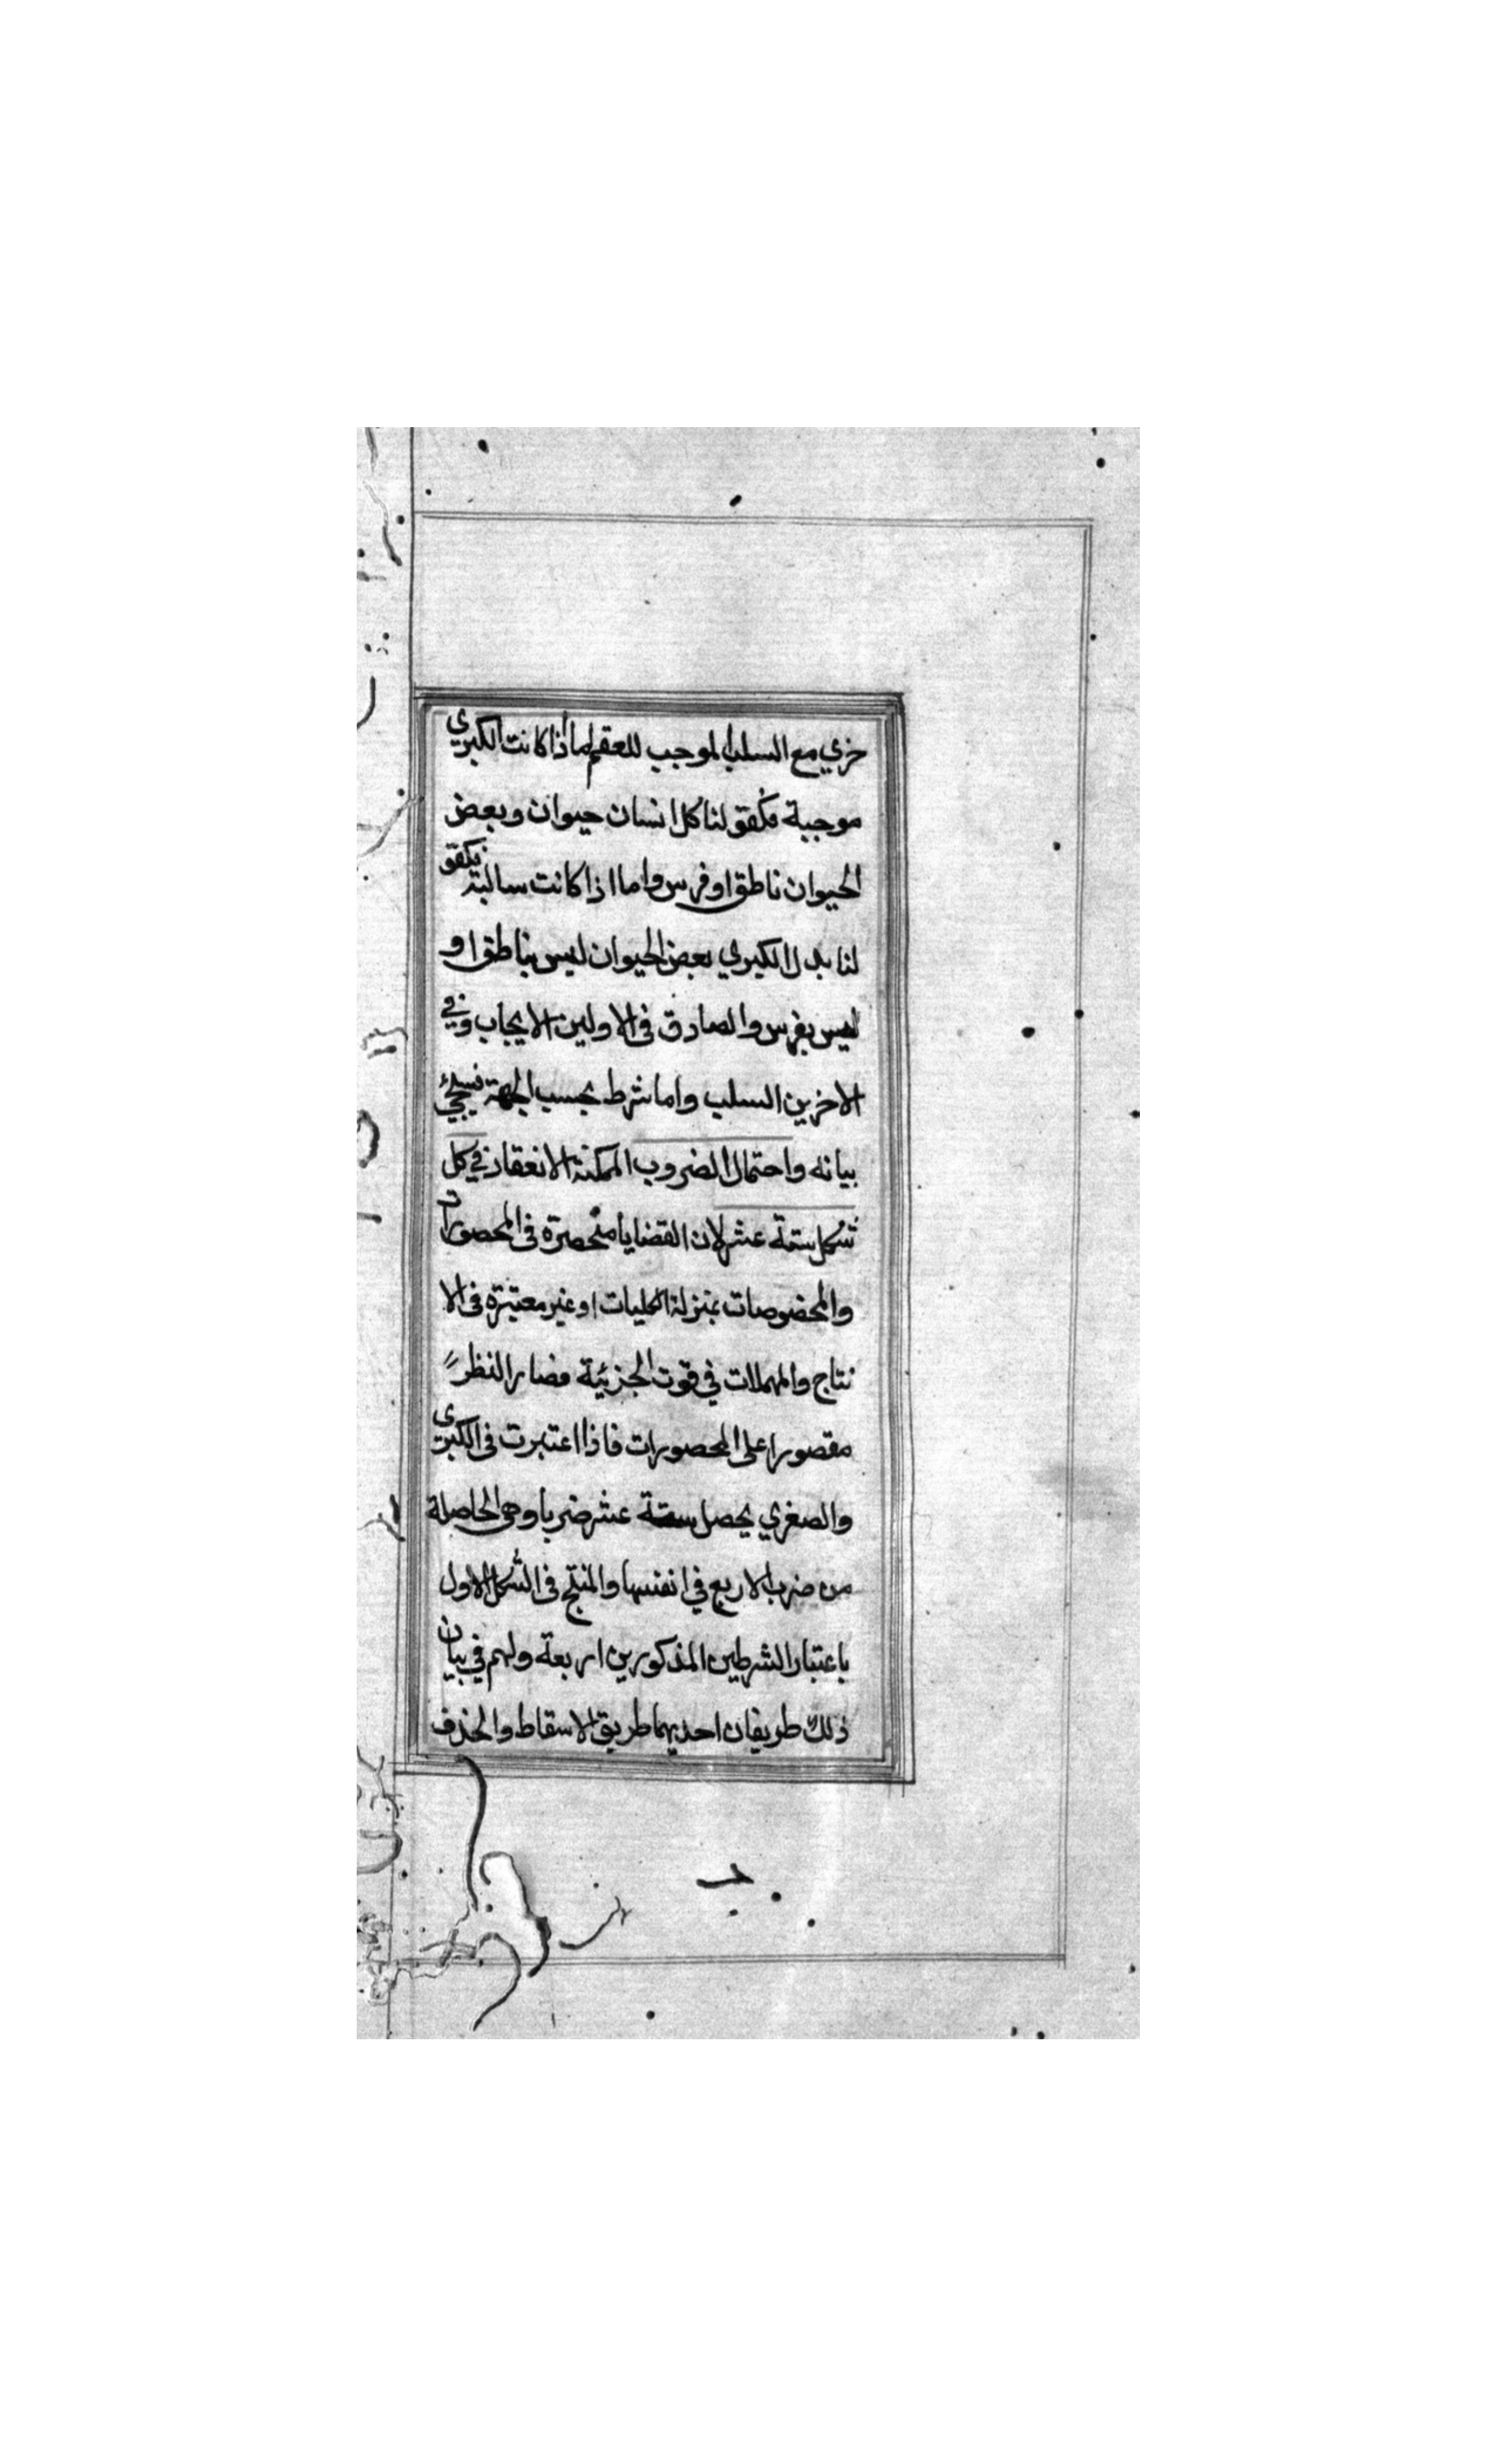 خري مع السلب الموجب للعقم اما اذا كانت الكبري
موجبة فكقولنا كل انسان حيوان وبعض
الحيوان ناطق او فرس واما اذا كانت سالبة فكقو
لنا بدل الكبري بعض الحيوان ليس بناطق او
ليس بفرس والصادق في الاولين الايجاب وفي
الاخرين السلب واما شرط بحسب الجهة فسيجيء
بيانه واحتمال الضروب الممكنة الانعقاد في كل
شكل ستة عشر لان القضايا منحصرة في المحصورات
والمخصوصات بمنزلة الكليات او غير معتبرة في الا
نتاج والمهملات في قوت الجزئية فصار النظر
مقصورا على المحصورات فاذا اعتبرت في الكبرى
والصغري يحصل ستة عشر ضربا وهي الحاصلة
من ضرب الاربع في انفسها والمنتج في الشكل الاول
باعتبار الشرطين المذكورين اربعة ولهم في بيان
ذلك طريقان احديهما طريق الاسقاط والحذف